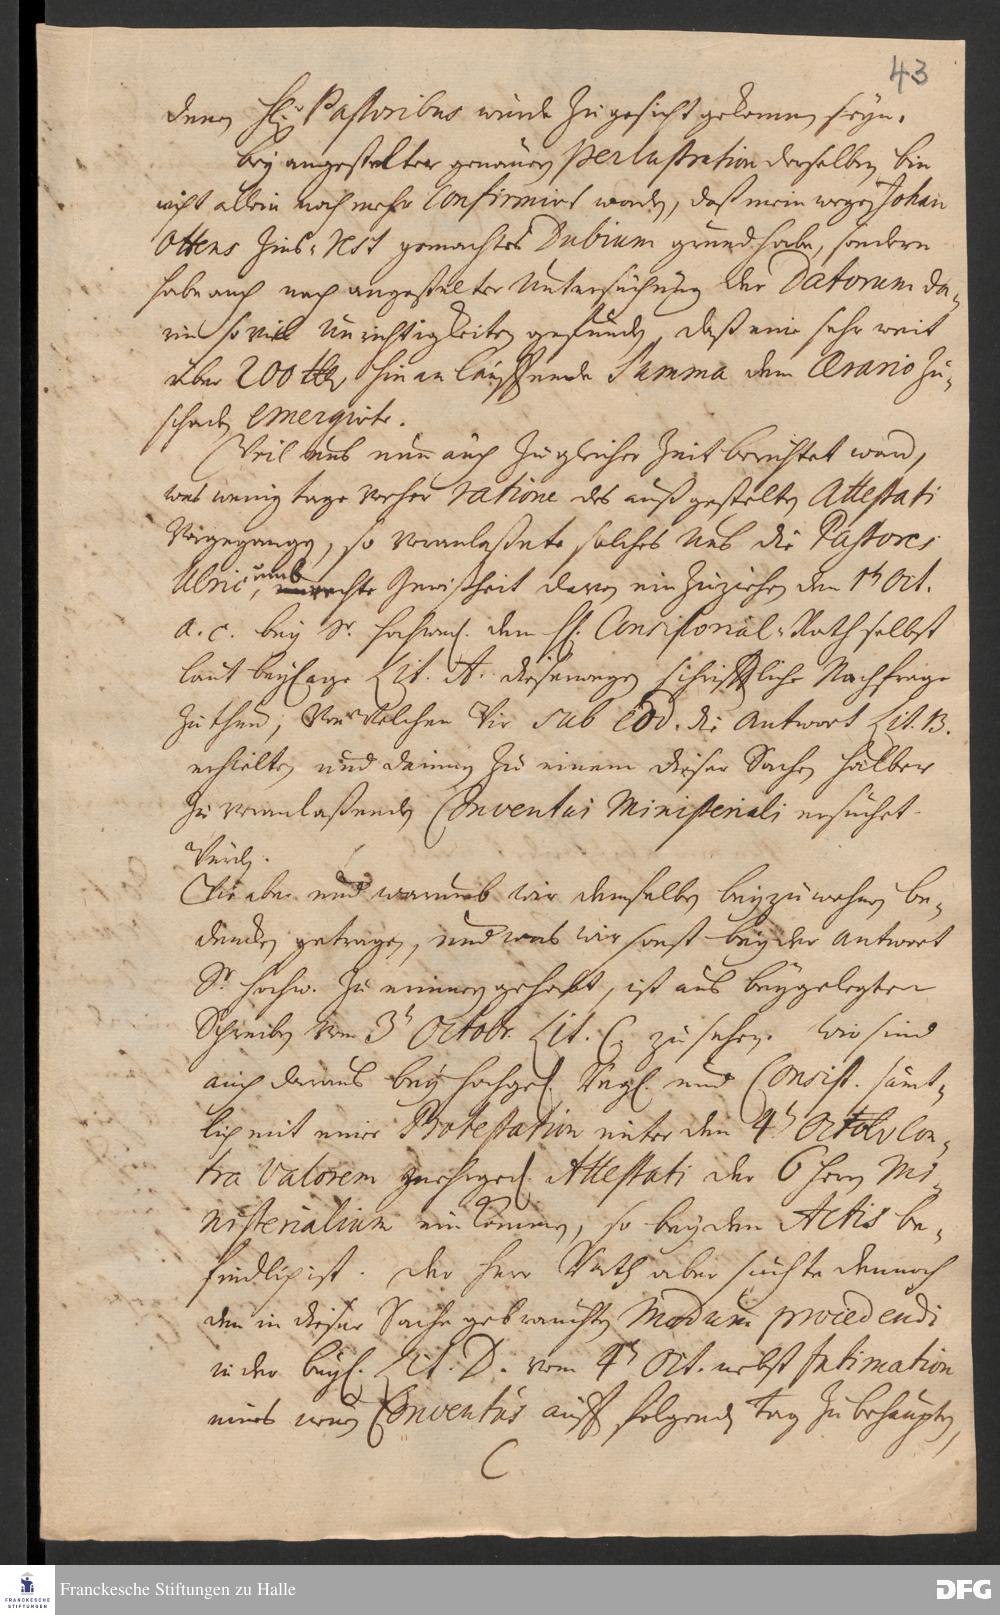 43
denen HE. Pastoribus würde zu gesicht gekommen seyn.
bey angestelter genauen perlustration derselben bin
nicht allein noch mehr Confirmirt worden, daß mein wegen Johan
Ottens Zins-Rest gemachtes Dubium grund habe, sondern
habe auch nach angestelter Untersuchung der Datorum da-
rin so viel Unrichtigkeiten gefunden, daß eine sehr weit
über 200 thlr hinan lauffende Summa dem Ærario zu-
schaden emergirte.
Weil uns nun auch zu gleicher Zeit berichtet ward,
was wenig tage vorher ratione des außgestelten Attestati
Vorgegangen, so veranlaßete solches uns die Pastores
Ulric: umb rechte Gewißheit davon einzuziehen den 1t Oct.
a. c. bey Sr. Hochw. dem H. Consistorial-Rath selbst
laut beylage Lit. A. dieserwegen schrifftliche Nachfrage
zu thun, Von welchem Wir sub eod. die Antwort Lit. B.
erhielten und darinn zu einem dieser Sachen halber
zu veranlaßenden Conventui Ministeriali ersuchet
Wurden.
Wie aber und warumb wir demselben beyzuwohnen be-
dencken getragen, und was wir sonst bey der Antwort
Sr. Hochw. zu erinnern gehabt, ist aus beygelegten
Schreiben vom 3t Octobr. Lit. C. zu sehen. Wir sind
auch daraus bey Hochgel. Regl. und Consist. sämt-
lich mit einer Protestation unter den 4t Octobr Con-
tra Valorem Attestati der 6 Herrn Mi-
nisterialium einkommen, so bey den Actis be-
findlich ist. Der Herr Rath aber suchte dennoch
den in dieser Sache gebrauchten Modum procedendi
in der beyl. Lit. D. vom 4t Oct. nebst Intimation
eines neuen Conventus auff folgenden Tag zu behaupten,
C
Franckesche Stiftungen zu Halle
FRANCKESCHE
STIFTUNGEN
DFG